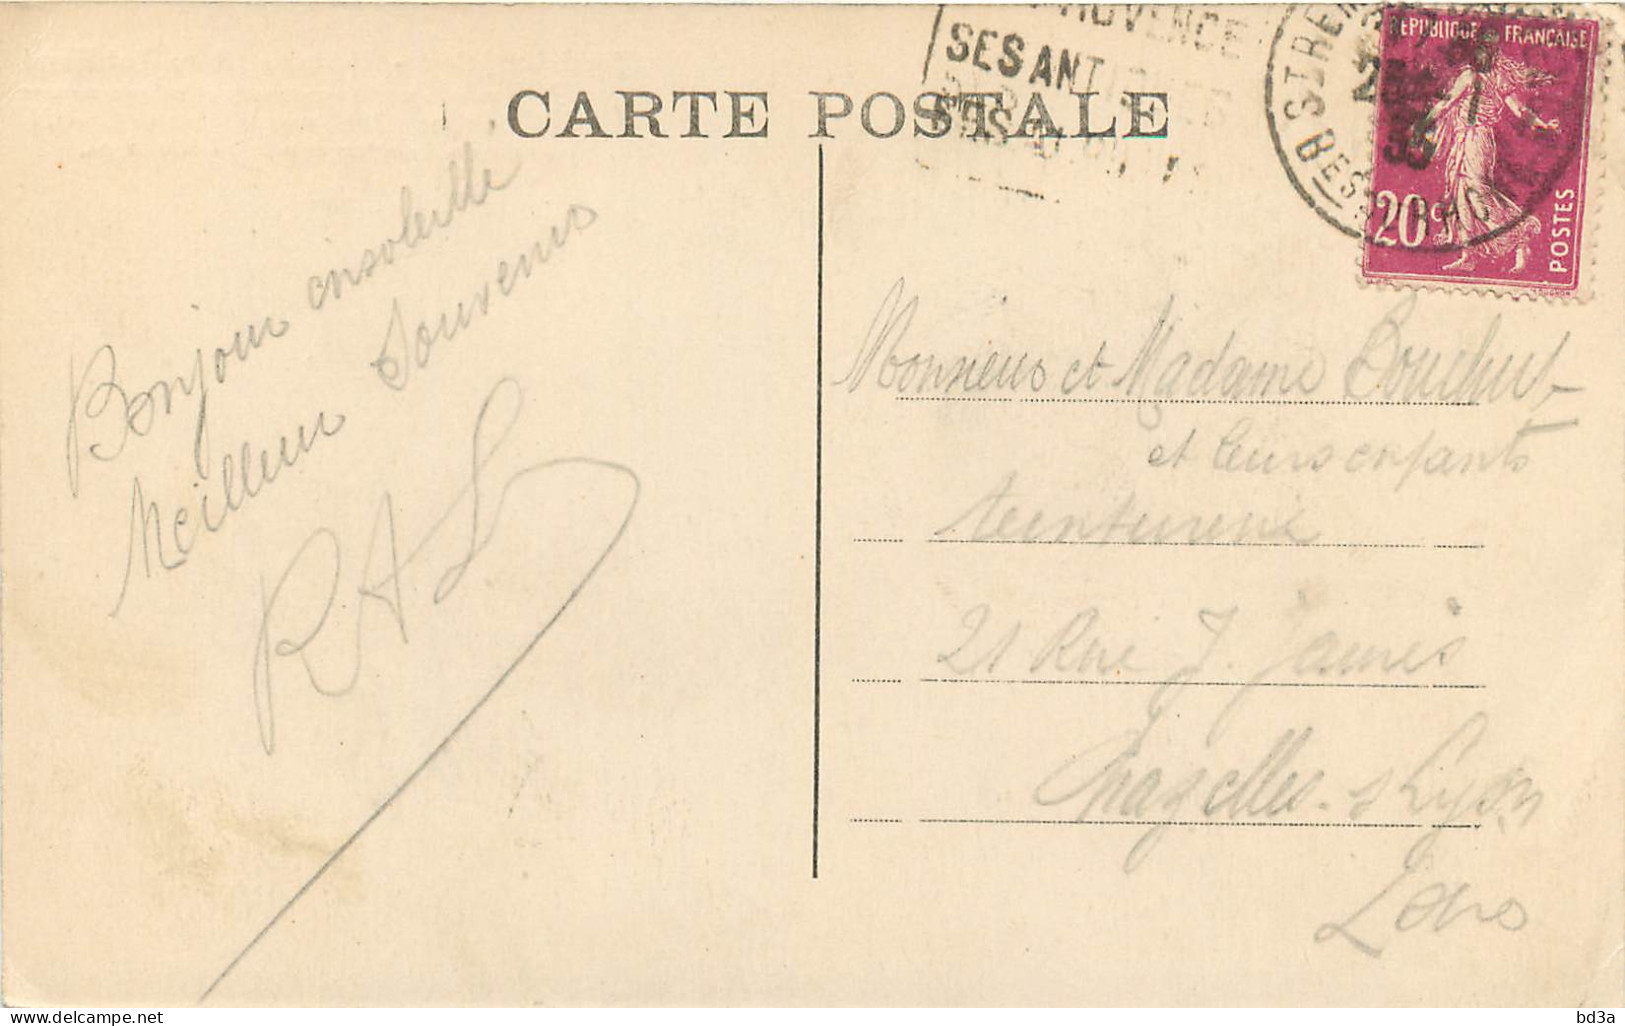 CARTE POSTALE
SES ANT
ST REM
BES DU RHONE
REPUBLIQUE FRANÇAISE
20 c
POSTES
Bonjour ensoleillé
Meilleur Souvenir
RAL
Monsieur et Madame Bouchut
et leurs enfants
teinturerie
21 Rue J. Jaurès
Chazelles s Lyon
Loire
delcampe.net
bd3a